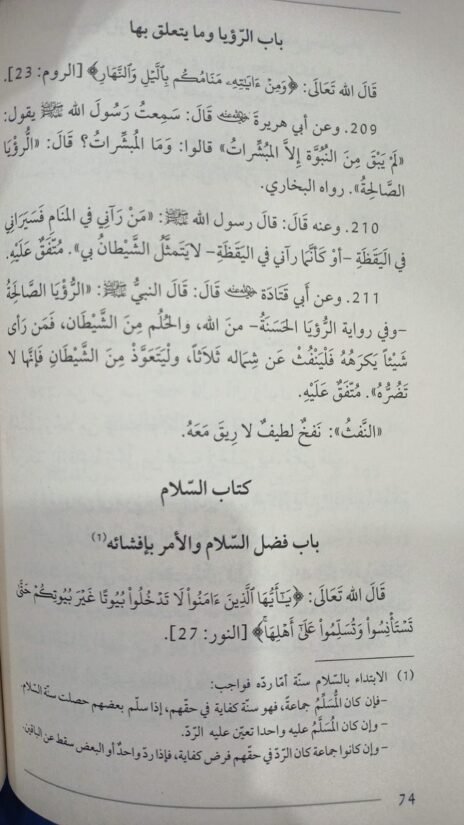 باب الرّؤيا وما يتعلق بها
قَالَ الله تَعَالَى: ﴿وَمِنْ ءَايَٰتِهِۦ مَنَامُكُم بِٱلَّيْلِ وَٱلنَّهَارِ﴾ [الروم: 23].
209. وعن أبي هريرةَ رضي الله عنه قَالَ: سَمِعتُ رَسُولَ الله ﷺ يقول:
«لَمْ يَبْقَ مِنَ النُّبُوَّة إِلاَّ المُبَشِّرَاتُ» قالوا: وَمَا المُبشِّراتُ؟ قَالَ: «الرُّؤيَا
الصَّالِحَةُ». رواه البخاري.
210. وعنه قَالَ: قالَ رسول الله ﷺ: «مَنْ رَآني في المَنَامِ فَسَيَرَانِي
في اليَقَظَةِ –أوْ كَأنَّمَا رآني في اليَقَظَةِ– لايَتمثَّلُ الشَّيْطانُ بي». مُتَّفَقٌ عَلَيْهِ.
211. وعن أَبي قَتَادَةَ رضي الله عنه قَالَ: قَالَ النبيُّ ﷺ: «الرُّؤيَا الصَّالحَةُ
–وفي رواية الرُّؤيَا الحَسَنَةُ– منَ الله، والحُلُم مِنَ الشَّيْطَان، فَمَن رَأى
شَيْئاً يَكرَهُهُ فَلْيَنْفُثْ عَن شِمَاله ثَلَاثاً، ولْيَتَعَوَّذْ مِنَ الشَّيْطَانِ فَإنَّها لا
تَضُرُّهُ». مُتّفَقٌ عَلَيْهِ.
«النَّفثُ»: نَفخٌ لطيفٌ لا رِيقَ مَعَهُ.
كتاب السّلام
باب فضل السّلام والأمر بإفشائه (1)
قَالَ الله تَعَالَى: ﴿يَٰٓأَيُّهَا ٱلَّذِينَ ءَامَنُواْ لَا تَدْخُلُواْ بُيُوتًا غَيْرَ بُيُوتِكُمْ حَتَّىٰ
تَسْتَأْنِسُواْ وَتُسَلِّمُواْ عَلَىٰٓ أَهْلِهَا﴾ [النور: 27].
(1) الابتداء بالسّلام سنّة أمّا ردّه فواجب:
–فإن كان المُسَلِّمُ جماعةً، فهو سنّة كفاية في حقّهم، إذا سلّم بعضهم حصلت سنّة السّلام.
– وإن كان المُسَلَّمُ عليه واحدا تعيّن عليه الرّدّ.
– وإن كانوا جماعة كان الرّدّ في حقّهم فرض كفاية، فإذا ردّ واحدٌ أو البعض سقط عن الباقين.
74